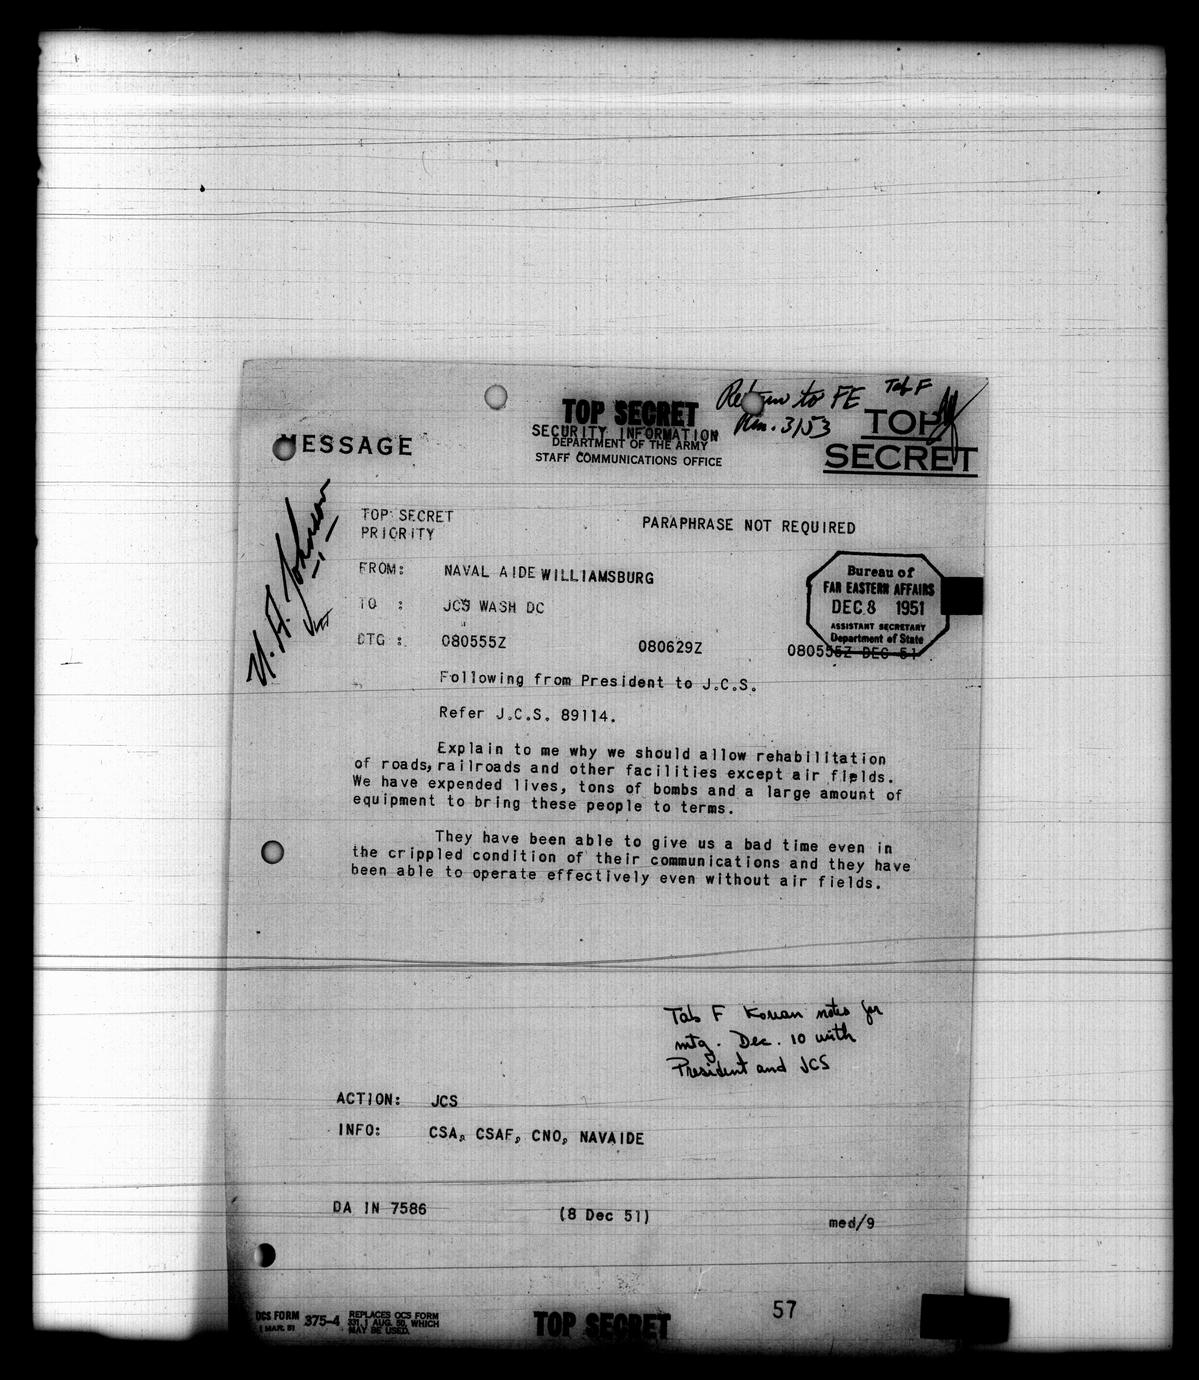 Return to FE Tab F
Rm. 3153
TOP SECRET
SECURITY INFORMATION
DEPARTMENT OF THE ARMY
STAFF COMMUNICATIONS OFFICE
MESSAGE
TOP
SECRET
U. A. Johnson
TOP SECRET
PRIORITY
PARAPHRASE NOT REQUIRED
FROM: NAVAL AIDE WILLIAMSBURG
TO : JCS WASH DC
DTG : 080555Z 080629Z 080555Z DEC 51
Bureau of
FAR EASTERN AFFAIRS
DEC 8 1951
ASSISTANT SECRETARY
Department of State
Following from President to J.C.S.
Refer J.C.S. 89114.
Explain to me why we should allow rehabilitation
of roads, railroads and other facilities except air fields.
We have expended lives, tons of bombs and a large amount of
equipment to bring these people to terms.
They have been able to give us a bad time even in
the crippled condition of their communications and they have
been able to operate effectively even without air fields.
Tab F Korean notes for
mtg. Dec. 10 with
President and JCS
ACTION: JCS
INFO: CSA, CSAF, CNO, NAVAIDE
DA IN 7586 (8 Dec 51) med/9
OCS FORM 375-4
1 MAR. 51
REPLACES OCS FORM
331, 1 AUG. 50, WHICH
MAY BE USED.
TOP SECRET
57